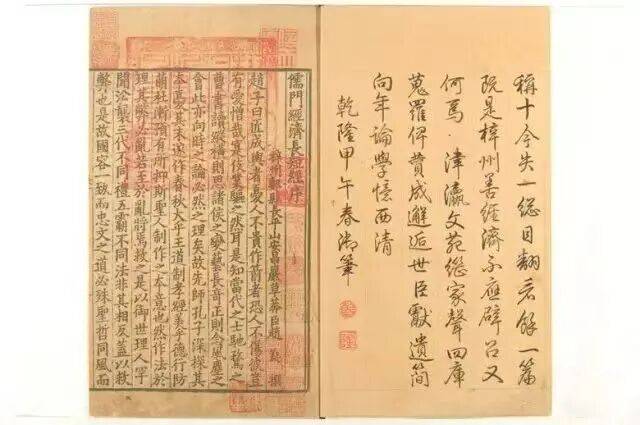 稱十今失一總目翻餘一篇
是梓州善經濟不應辟召又
何焉津瀛文苑繼家聲四庫
蒐羅俾費成邂逅世臣獻遺簡
向年論學憶西清
乾隆甲午春御筆
儒門經濟長短經序
梓州郪縣長平山安昌巖草莽臣趙蕤撰
趙子曰匠成輿者憂人不貴作箭者恐人不傷彼豈
有愛憎哉實伎業驅之然耳是知當代之士馳騖之
曹書讀縱橫則思諸侯之變藝長奇正則念風塵之
會此亦向時之論必然之理矣故先師孔子深探其
本憂其末遂作春秋大乎王道制孝經美乎德行防
萌杜漸預有所抑斯聖人制作之本意也然作法於
理其弊必亂若至於亂將焉救之是以御世理人罕
聞沿襲三代不同禮五霸不同法非其相反蓋以救
弊也是故國容一致而忠文之道必殊聖哲同風而